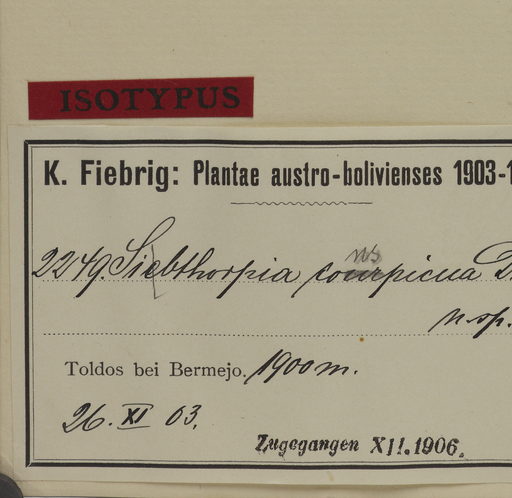 ISOTYPUS
K. Fiebrig: Plantae austro-bolivienses 1903-1
ns
2249. Siebthorpia conspicua D
n. sp.
Toldos bei Bermejo. 1900 m.
26. XI 03.
Zugegangen XII. 1906.